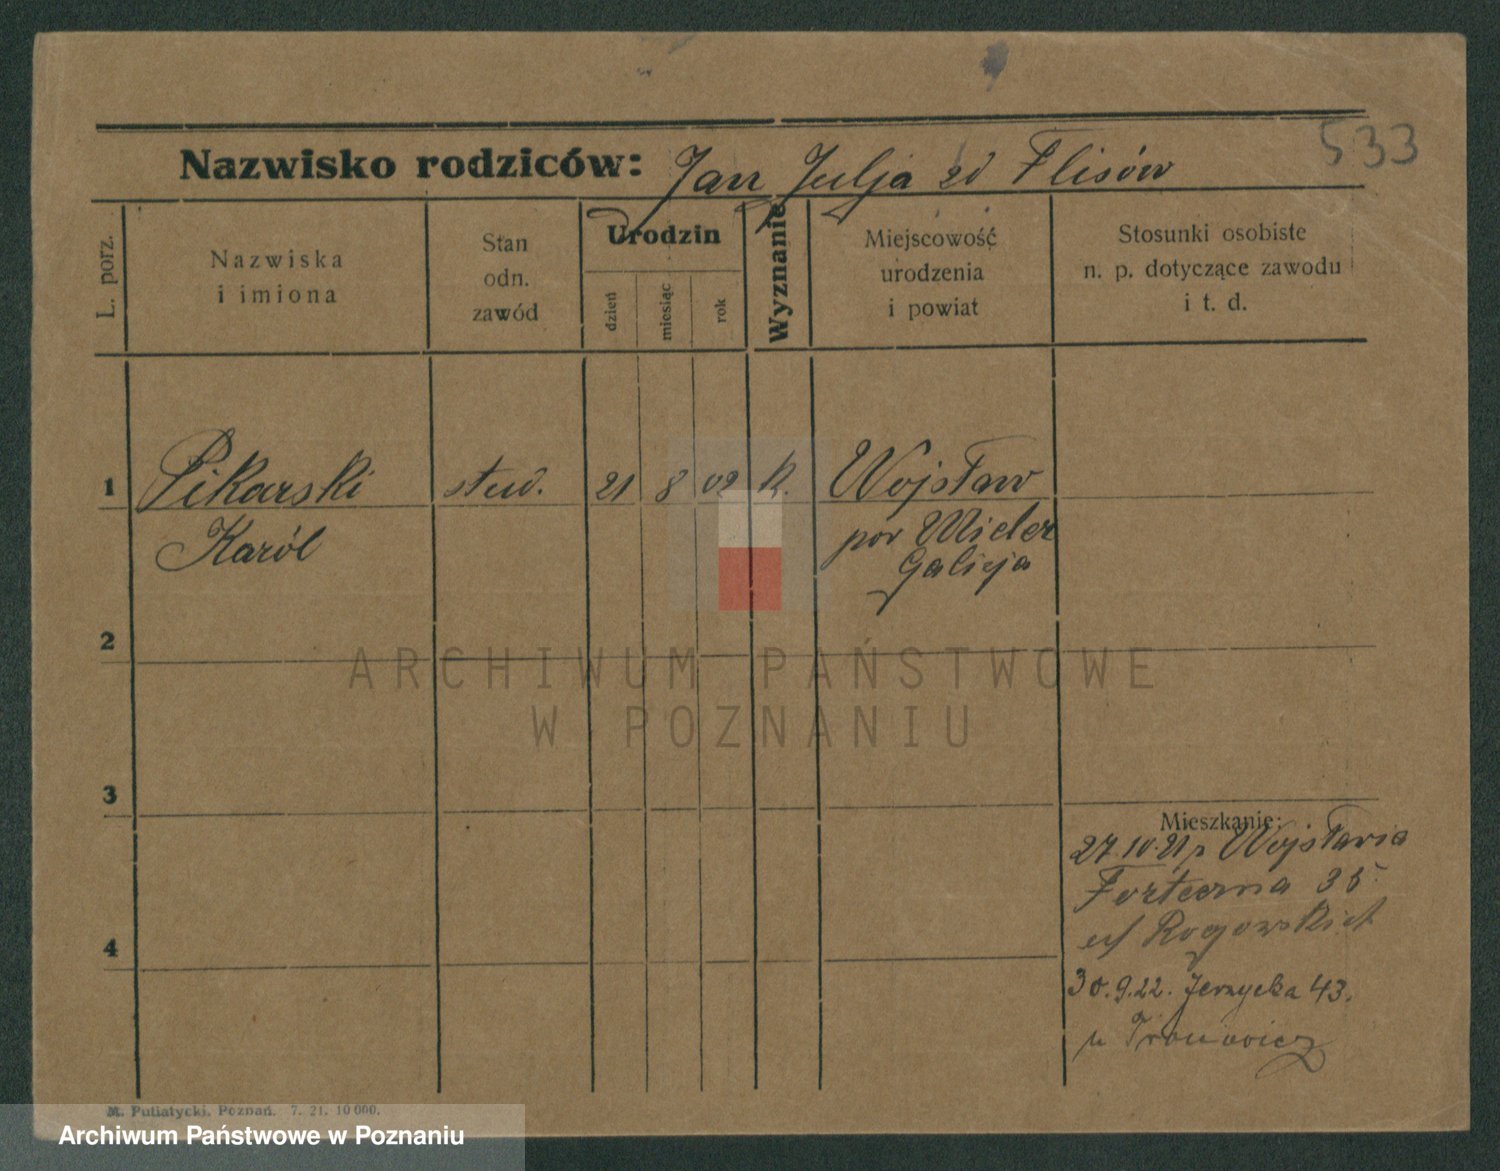 533
Nazwisko rodziców: Jan Julja zd Flisów
L. porz.
Nazwiska
i imiona
Stan
odn.
zawód
Urodzin
dzień
miesiąc
rok
Wyznanie
Miejscowość
urodzenia
i powiat
Stosunki osobiste
n. p. dotyczące zawodu
i t. d.
1 Pikarski stud. 21 8 02 k. Wojsław
Karól pow
Galicja
2
ARCHIWUM PAŃSTWOWE
W POZNANIU
3
Mieszkanie:
27.10.21 Wojsławia
Forteczna 35
Rogowskich
4
30.9.22. Jerzycka 43.
u
M. Putiatycki, Poznań. 7. 21. 10 000.
Archiwum Państwowe w Poznaniu